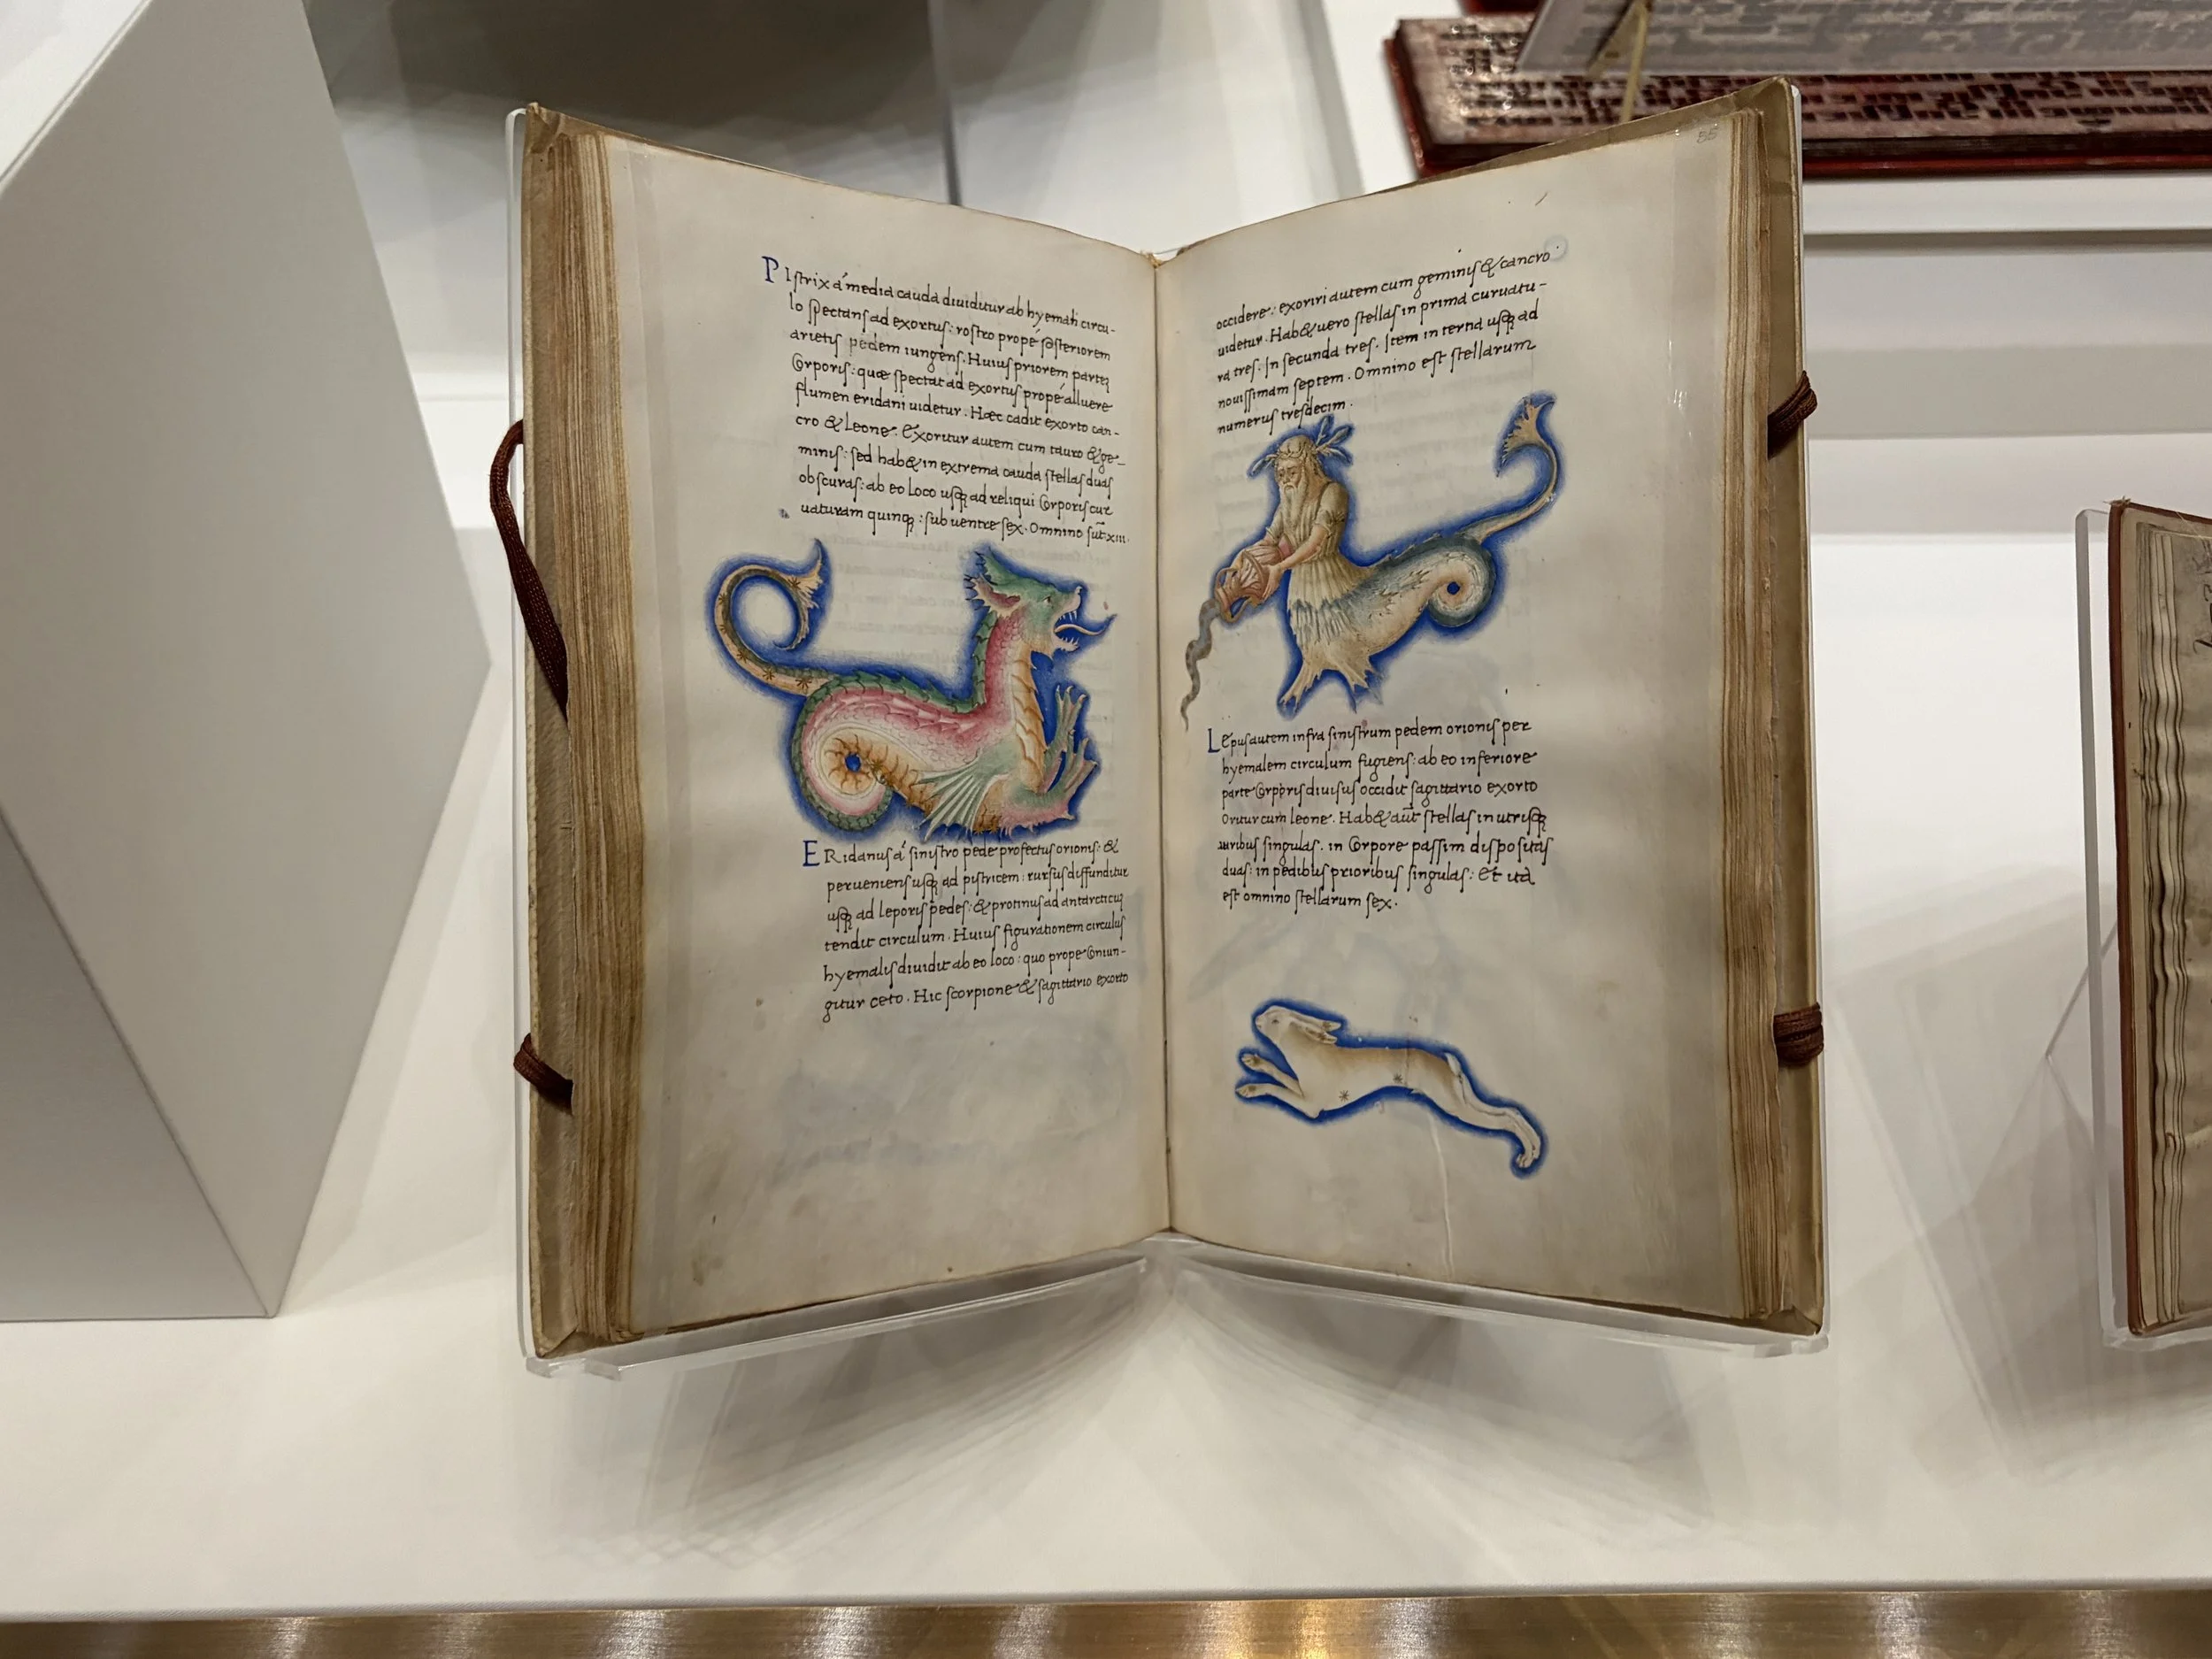 PIstrix á media cauda diuiditur ab hyemali circu-
lo spectans ad exortus: rostro propé posteriorem
arietis pedem iungens. Huius priorem parteȝ
corporis: quæ spectat ad exortus propé alluere
flumen eridani uidetur. Hæc cadit exorto can-
cro & Leone. Exoritur autem cum tauro & ge-
minis: sed hab& in extrema cauda stellas duas
obscuras: ab eo loco usqȝ ad reliqui corporis cur
uaturam quinqȝ: sub uentre sex. Omnino sūt xiii.
ERidanus á sinistro pede profectus orionis: &
perueniens usqȝ ad pistricem: rursus diffunditur
usqȝ ad leporis pedes: & protinus ad antarcticuȝ
tendit circulum. Huius figurationem circulus
hyemalis diuidit ab eo loco: quo prope coniun-
gitur ceto. Hic scorpione & sagittario exorto
55
occidere: exoriri autem cum geminis & cancro
uidetur. Hab& uero stellas in prima curuatu-
ra tres. In secunda tres. Item in tertia usqȝ ad
nouissimam septem. Omnino est stellarum
numerus tresdecim.
LEpus autem infra sinistrum pedem orionis per
hyemalem circulum fugiens: ab eo inferiore
parte corporis diuisus occidit sagittario exorto
Oritur cum leone. Hab& aūt stellas in utrisqȝ
auribus singulas. in corpore passim dispositas
duas: in pedibus prioribus singulas: Et ita
est omnino stellarum sex.